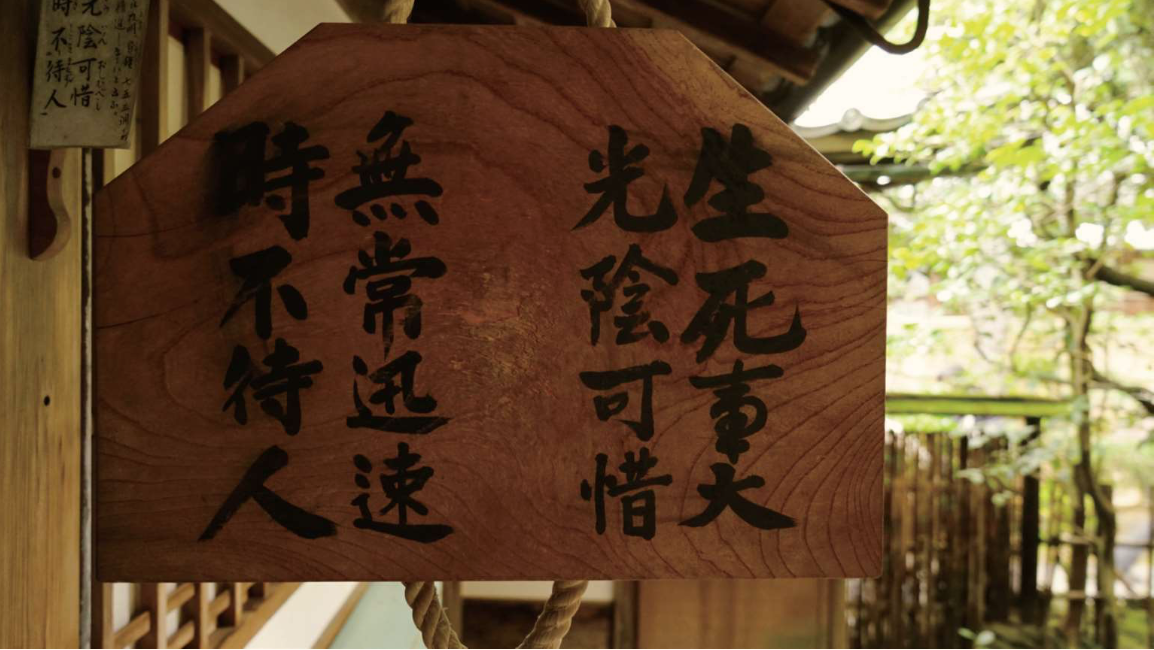 生死事大
光陰可惜
無常迅速
時不待人
光陰可惜
時不待人